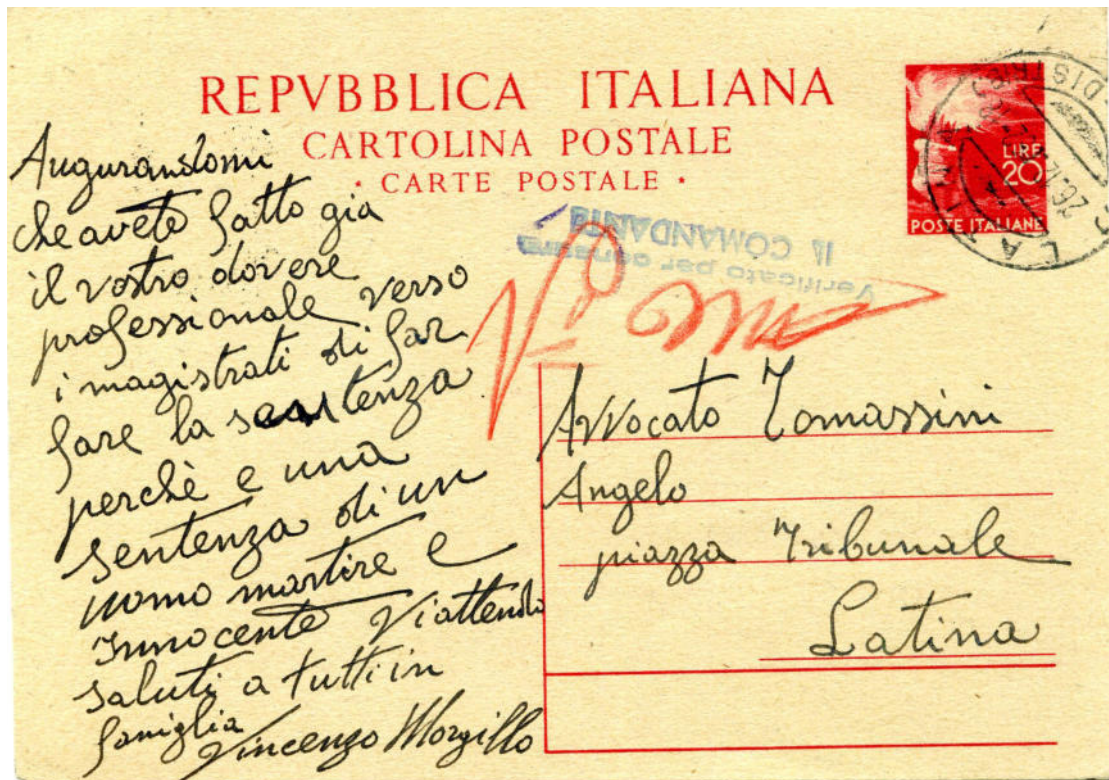 REPVBBLICA ITALIANA
CARTOLINA POSTALE
· CARTE POSTALE ·
LIRE
20
POSTE ITALIANE
LATINA
Verificato per censura
IL COMANDANTE
Augurandomi
che avete fatto gia
il vostro dovere
professionale verso
i magistrati di far
fare la sentenza
perchè e una
sentenza di un
uomo martire e
Innocente Viattendo
saluti a tutti in
famiglia
Vincenzo Morgillo
Avvocato Tomassini
Angelo
piazza Tribunale
Latina